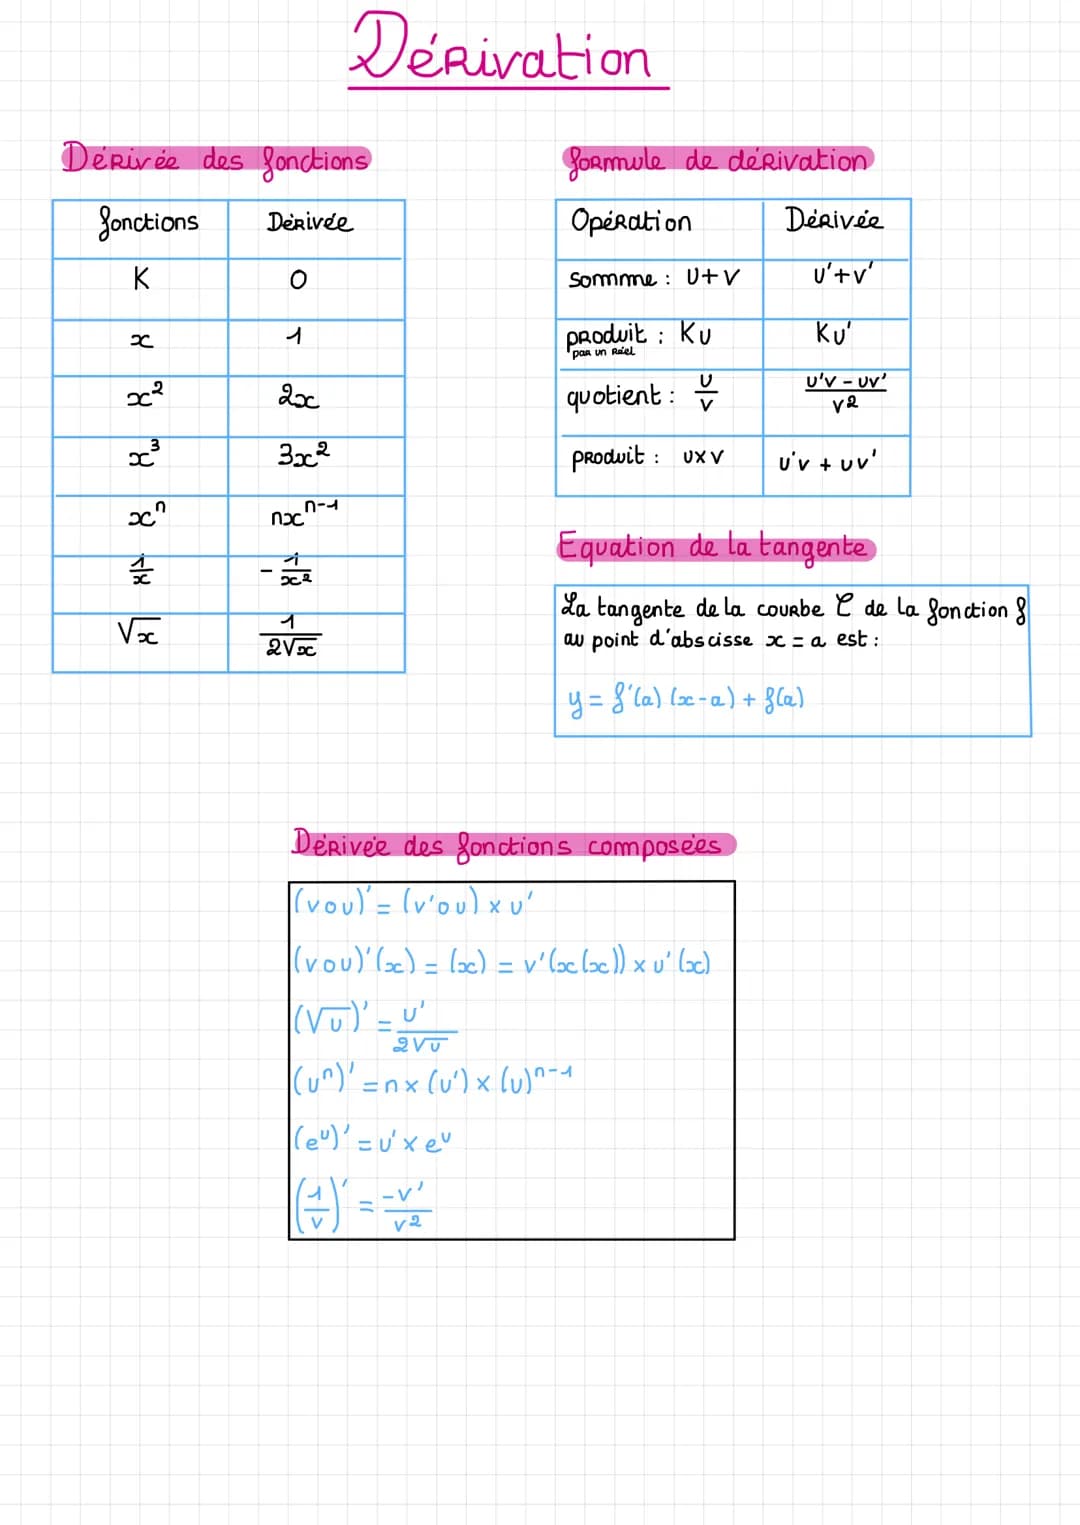 Dérivation
Dérivée des fonctions
fonctions | Dérivée
K | 0
x | 1
x² | 2x
x³ | 3x²
xⁿ | nxⁿ⁻¹
1/x | -1/x²
√x | 1/(2√x)
formule de dérivation
Opération | Dérivée
sommme : U+V | U'+V'
produit : KU | KU'
par un Réel
quotient : U/V | (U'V - UV')/V²
produit : UxV | U'V + UV'
Equation de la tangente
La tangente de la courbe C de la fonction f
au point d'abscisse x = a est :
y = f'(a) (x-a) + f(a)
Dérivée des fonctions composées
(voU)' = (v'oU) x U'
(voU)'(x) = (x) = v'(x(x)) x U'(x)
(√U)' = U'/(2√U)
(Uⁿ)' = n x (U') x (U)ⁿ⁻¹
(eᵁ)' = U' x eᵁ
(1/V)' = -V'/V²